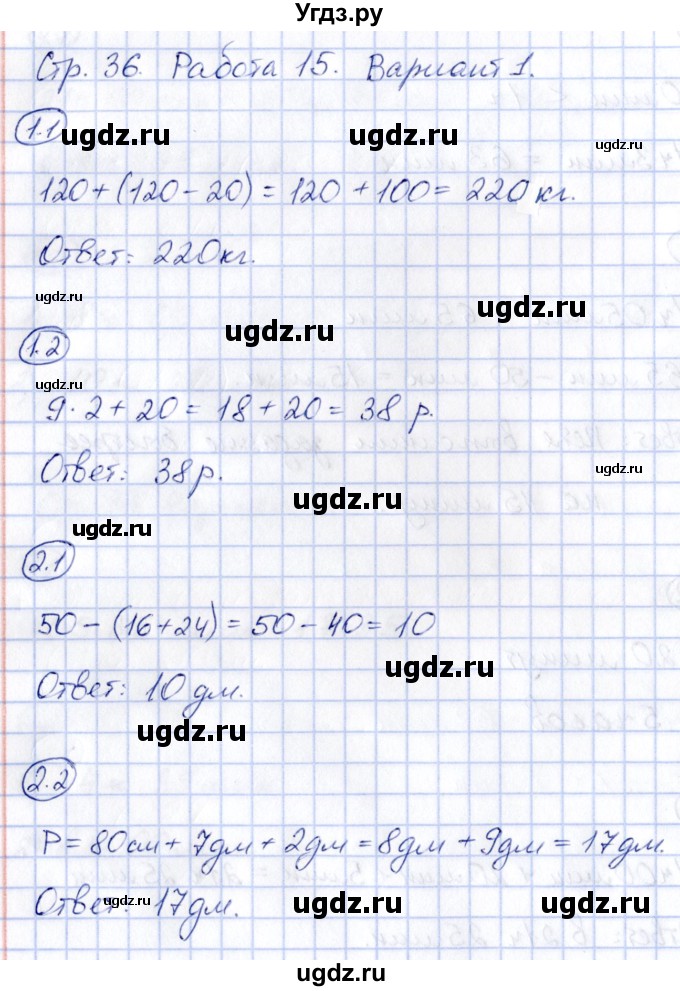 Угдз.ру
Стр. 36. Работа 15. Вариант 1.
1.1
ugdz.ru ugdz.ru ugdz.ru
120+(120-20)=120+100=220кг.
Ответ: 220кг.
ugdz.ru ugdz.ru ugdz.ru
1.2
ugdz.ru
9·2+20=18+20=38 р.
Ответ: 38р.
ugdz.ru ugdz.ru ugdz.ru
2.1
50-(16+24)=50-40=10
Ответ: 10 дм.
ugdz.ru ugdz.ru
2.2
P=80см+7дм+2дм=8дм+9дм=17дм.
Ответ: 17дм.
ugdz.ru ugdz.ru ugdz.ru
ugdz.ru